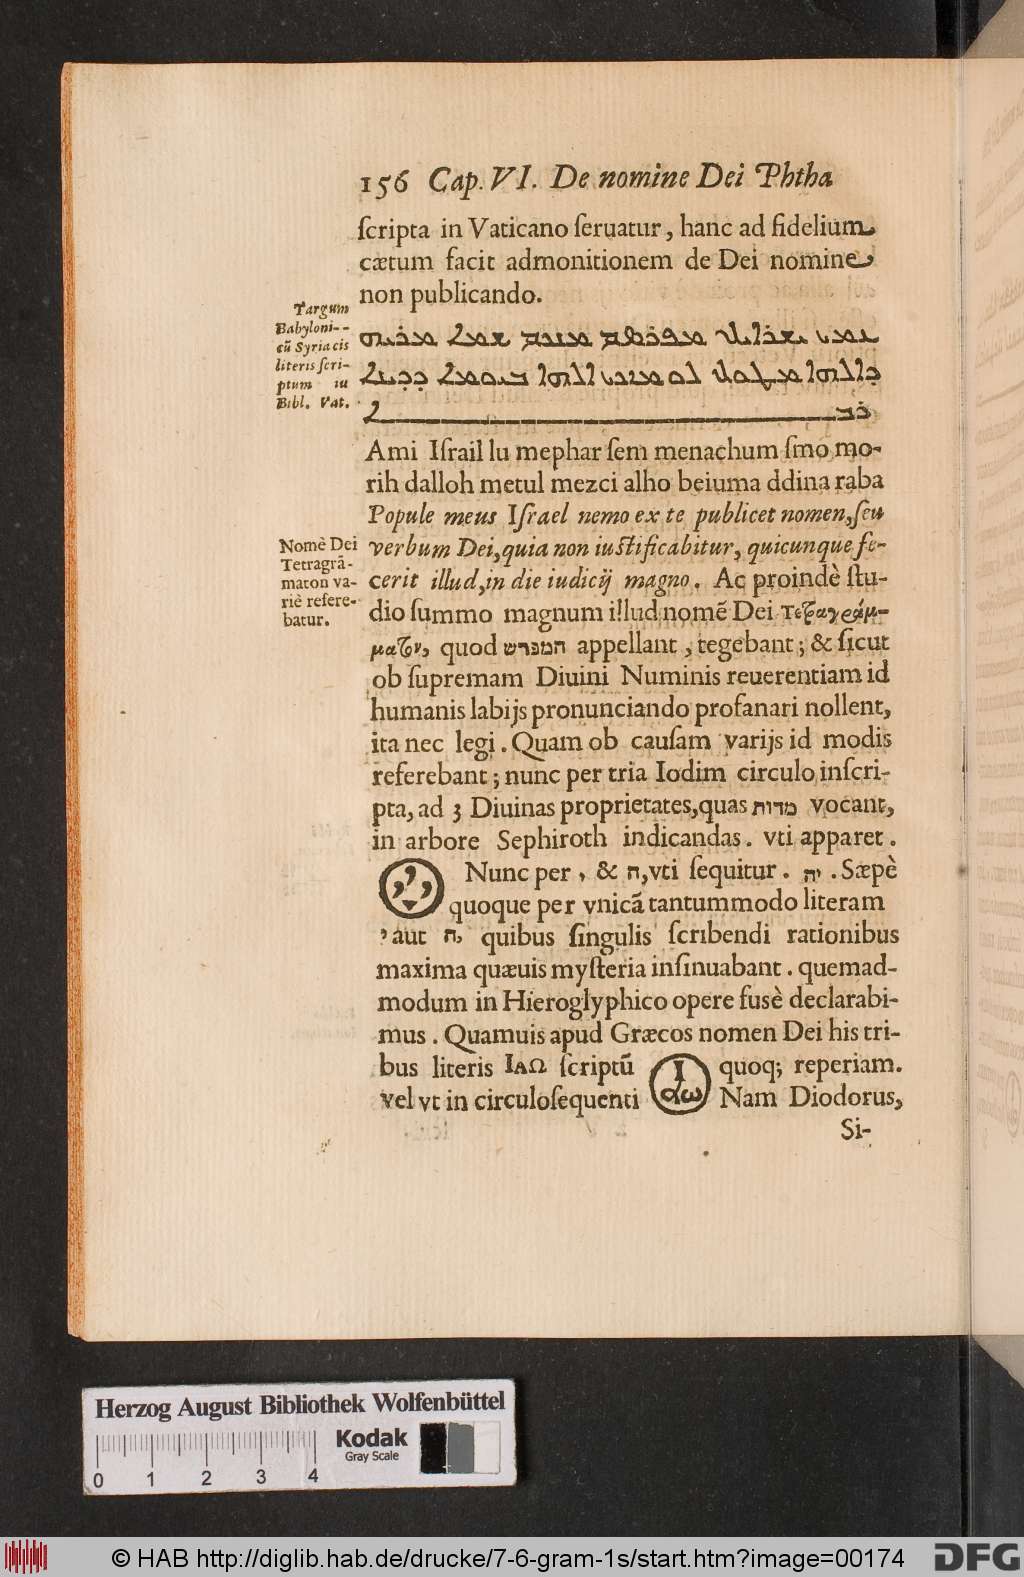 156 Cap. VI. De nomine Dei Phtha
ſcripta in Vaticano ſeruatur, hanc ad fidelium
cætum facit admonitionem de Dei nomine
non publicando.
Targum
Babyloni--
cū Syriacis
literis ſcri-
ptum in
Bibl. Vat.
Ami Iſrail lu mephar ſem menachum ſmo mo-
rih dalloh metul mezci alho beiuma ddina raba
Popule meus Iſrael nemo ex te publicet nomen, ſeu
verbum Dei, quia non iuſtificabitur, quicunque fe-
cerit illud, in die iudicij magno. Ac proindè ſtu-
dio ſummo magnum illud nomē Dei τετραγράμ-
ματον, quod המפרש appellant, tegebant; & ſicut
ob ſupremam Diuini Numinis reuerentiam id
humanis labijs pronunciando profanari nollent,
ita nec legi. Quam ob cauſam varijs id modis
referebant; nunc per tria Iodim circulo inſcri-
pta, ad 3 Diuinas proprietates, quas מדות vocant,
in arbore Sephiroth indicandas. vti apparet.
Nomē Dei
Tetragrā-
maton va-
riè refere-
batur.
Nunc per י & ה, vti ſequitur. יה. Sæpè
quoque per vnicā tantummodo literam
י aut ה, quibus ſingulis ſcribendi rationibus
maxima quæuis myſteria inſinuabant. quemad-
modum in Hieroglyphico opere fusè declarabi-
mus. Quamuis apud Græcos nomen Dei his tri-
bus literis ΙΑΩ ſcriptū quoq; reperiam.
vel vt in circulo ſequenti Ι αω Nam Diodorus,
Si-
Herzog August Bibliothek Wolfenbüttel
Kodak
Gray Scale
0 1 2 3 4
© HAB http://diglib.hab.de/drucke/7-6-gram-1s/start.htm?image=00174
DFG